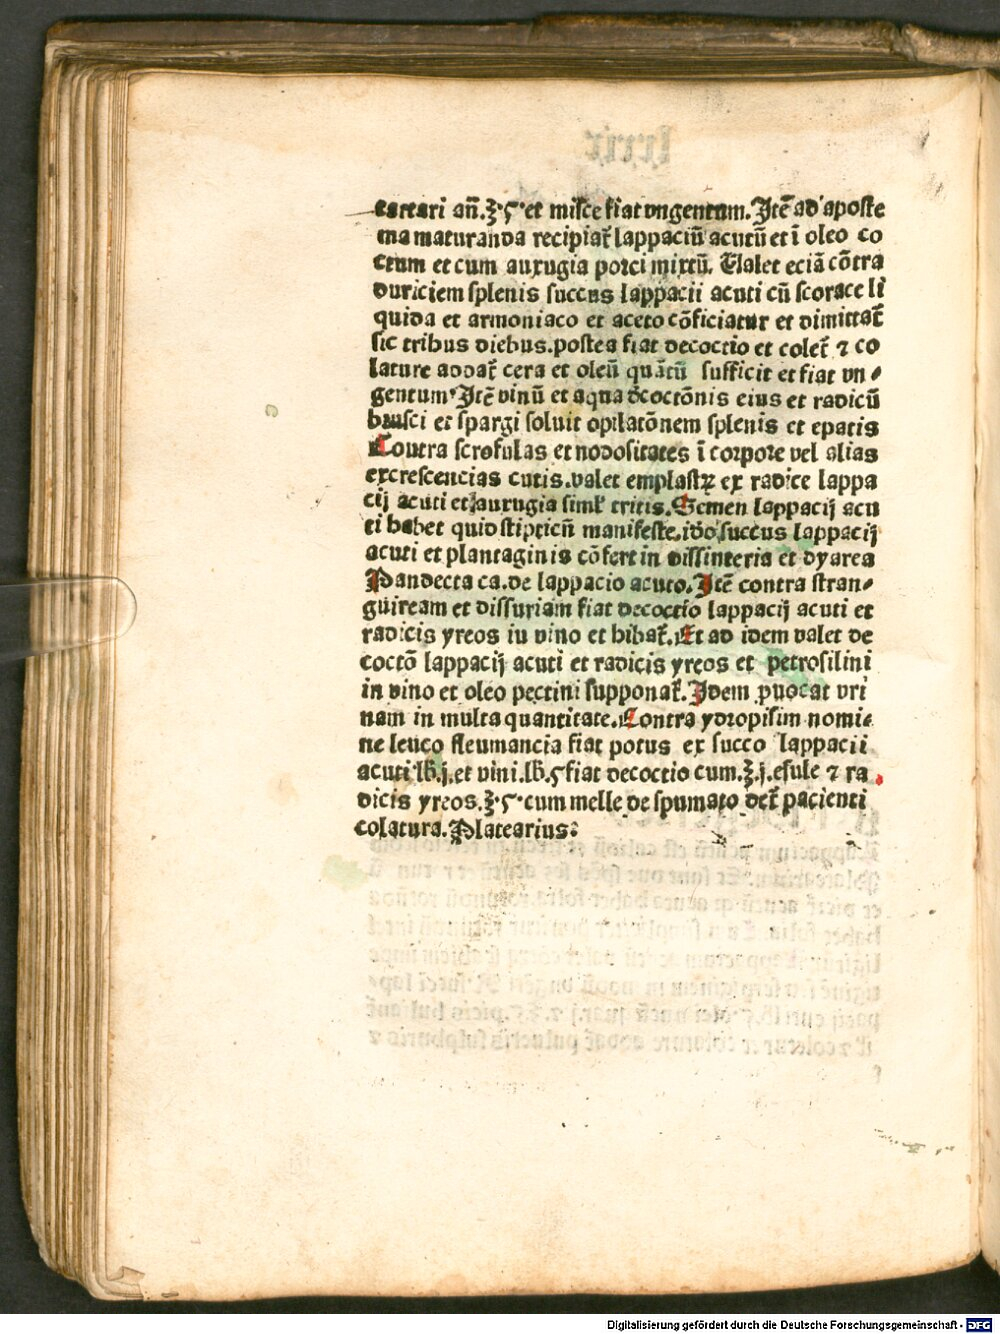 tartari an̄.ʒ.ς.et misce fiat vngentum. Itē ad aposte
ma maturanda recipiat̄ lappaciū acutū et ī oleo co
ctum et cum auxugia porci mixtū. Ualet eciā cōtra
duriciem splenis succus lappacii acuti cū storace li
quida et armoniaco et aceto cōficiatur et dimittat̄
sic tribus diebus.postea fiat decoctio et colet̄ ⁊ co
lature addat̄ cera et oleū quātū sufficit et fiat vn⸗
gentum. Itē vinū et aqua dcoctōnis eius et radicū
brusci et spargi soluit opilatōnem splenis et epatis
Contra scrofulas et nodositates ī corpore vel alias
excrescencias cutis.valet emplastrꝫ ex radice lappa
cij acuti et auxugia simĺ tritis. Semen lappacij acu
ti habet quid stipticū manifeste.ido succus lappacij
acuti et plantaginis cōfert in dissinteria et dyarea
Pandecta ca.de lappacio acuto. Itē contra stran⸗
guiream et dissuriam fiat decoctio lappacij acuti et
radicis yreos in vino et bibat̄. Et ad idem valet de
coctō lappacij acuti et radicis yreos et petrosilini
in vino et oleo pectini supponat̄. Idem ꝓuocat vri
nam in multa quantitate. Contra ydropisim nomi⸗
ne leuco fleumancia fiat potus ex succo lappacii
acuti lb̄.j.et vini.lb̄.ς fiat decoctio cum.ʒ.j.esule ⁊ ra
dicis yreos.ʒ.ς.cum melle de spumato det̄ pacienti
colatura. Platearius:
Digitalisierung gefördert durch die Deutsche Forschungsgemeinschaft - DFG